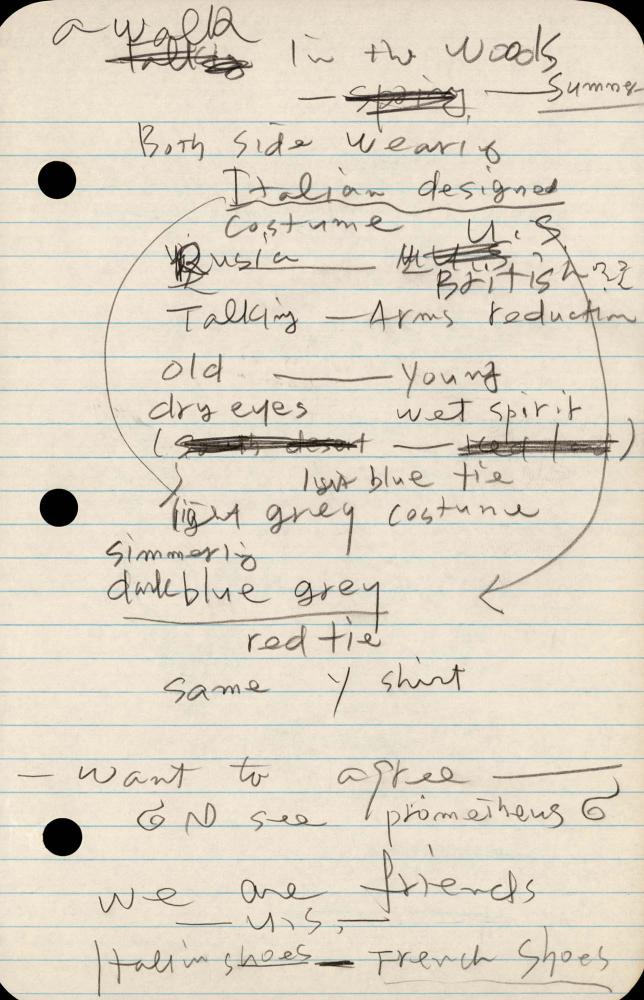 a walk
in the woods
— spring — Summer
Both side wearing
Italian designed
costume U.S.
Rusia — U.S.
British
Talking — Arms reduction
old — young
dry eyes wet spirit
( desert — )
light blue tie
light grey costume
simmering
dark blue grey
red tie
same Y shirt
— want to agree —
see prometheus
we are friends
— U.S. —
Italin shoes — French Shoes